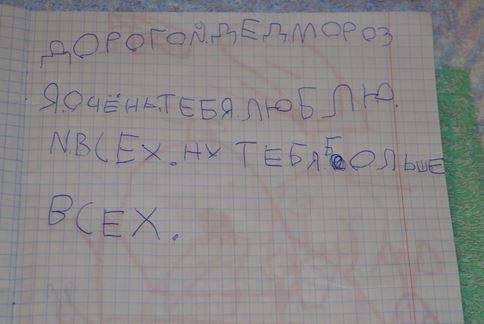 ДОРОГОЙ.ДЕДМОРОЗ
Я.ОЧЁНЬ.ТЕБЯ.ЛЮБЛЮ.
NВСЕХ.НУ ТЕБЯ.БОЛЬШЕ
ВСЕХ.